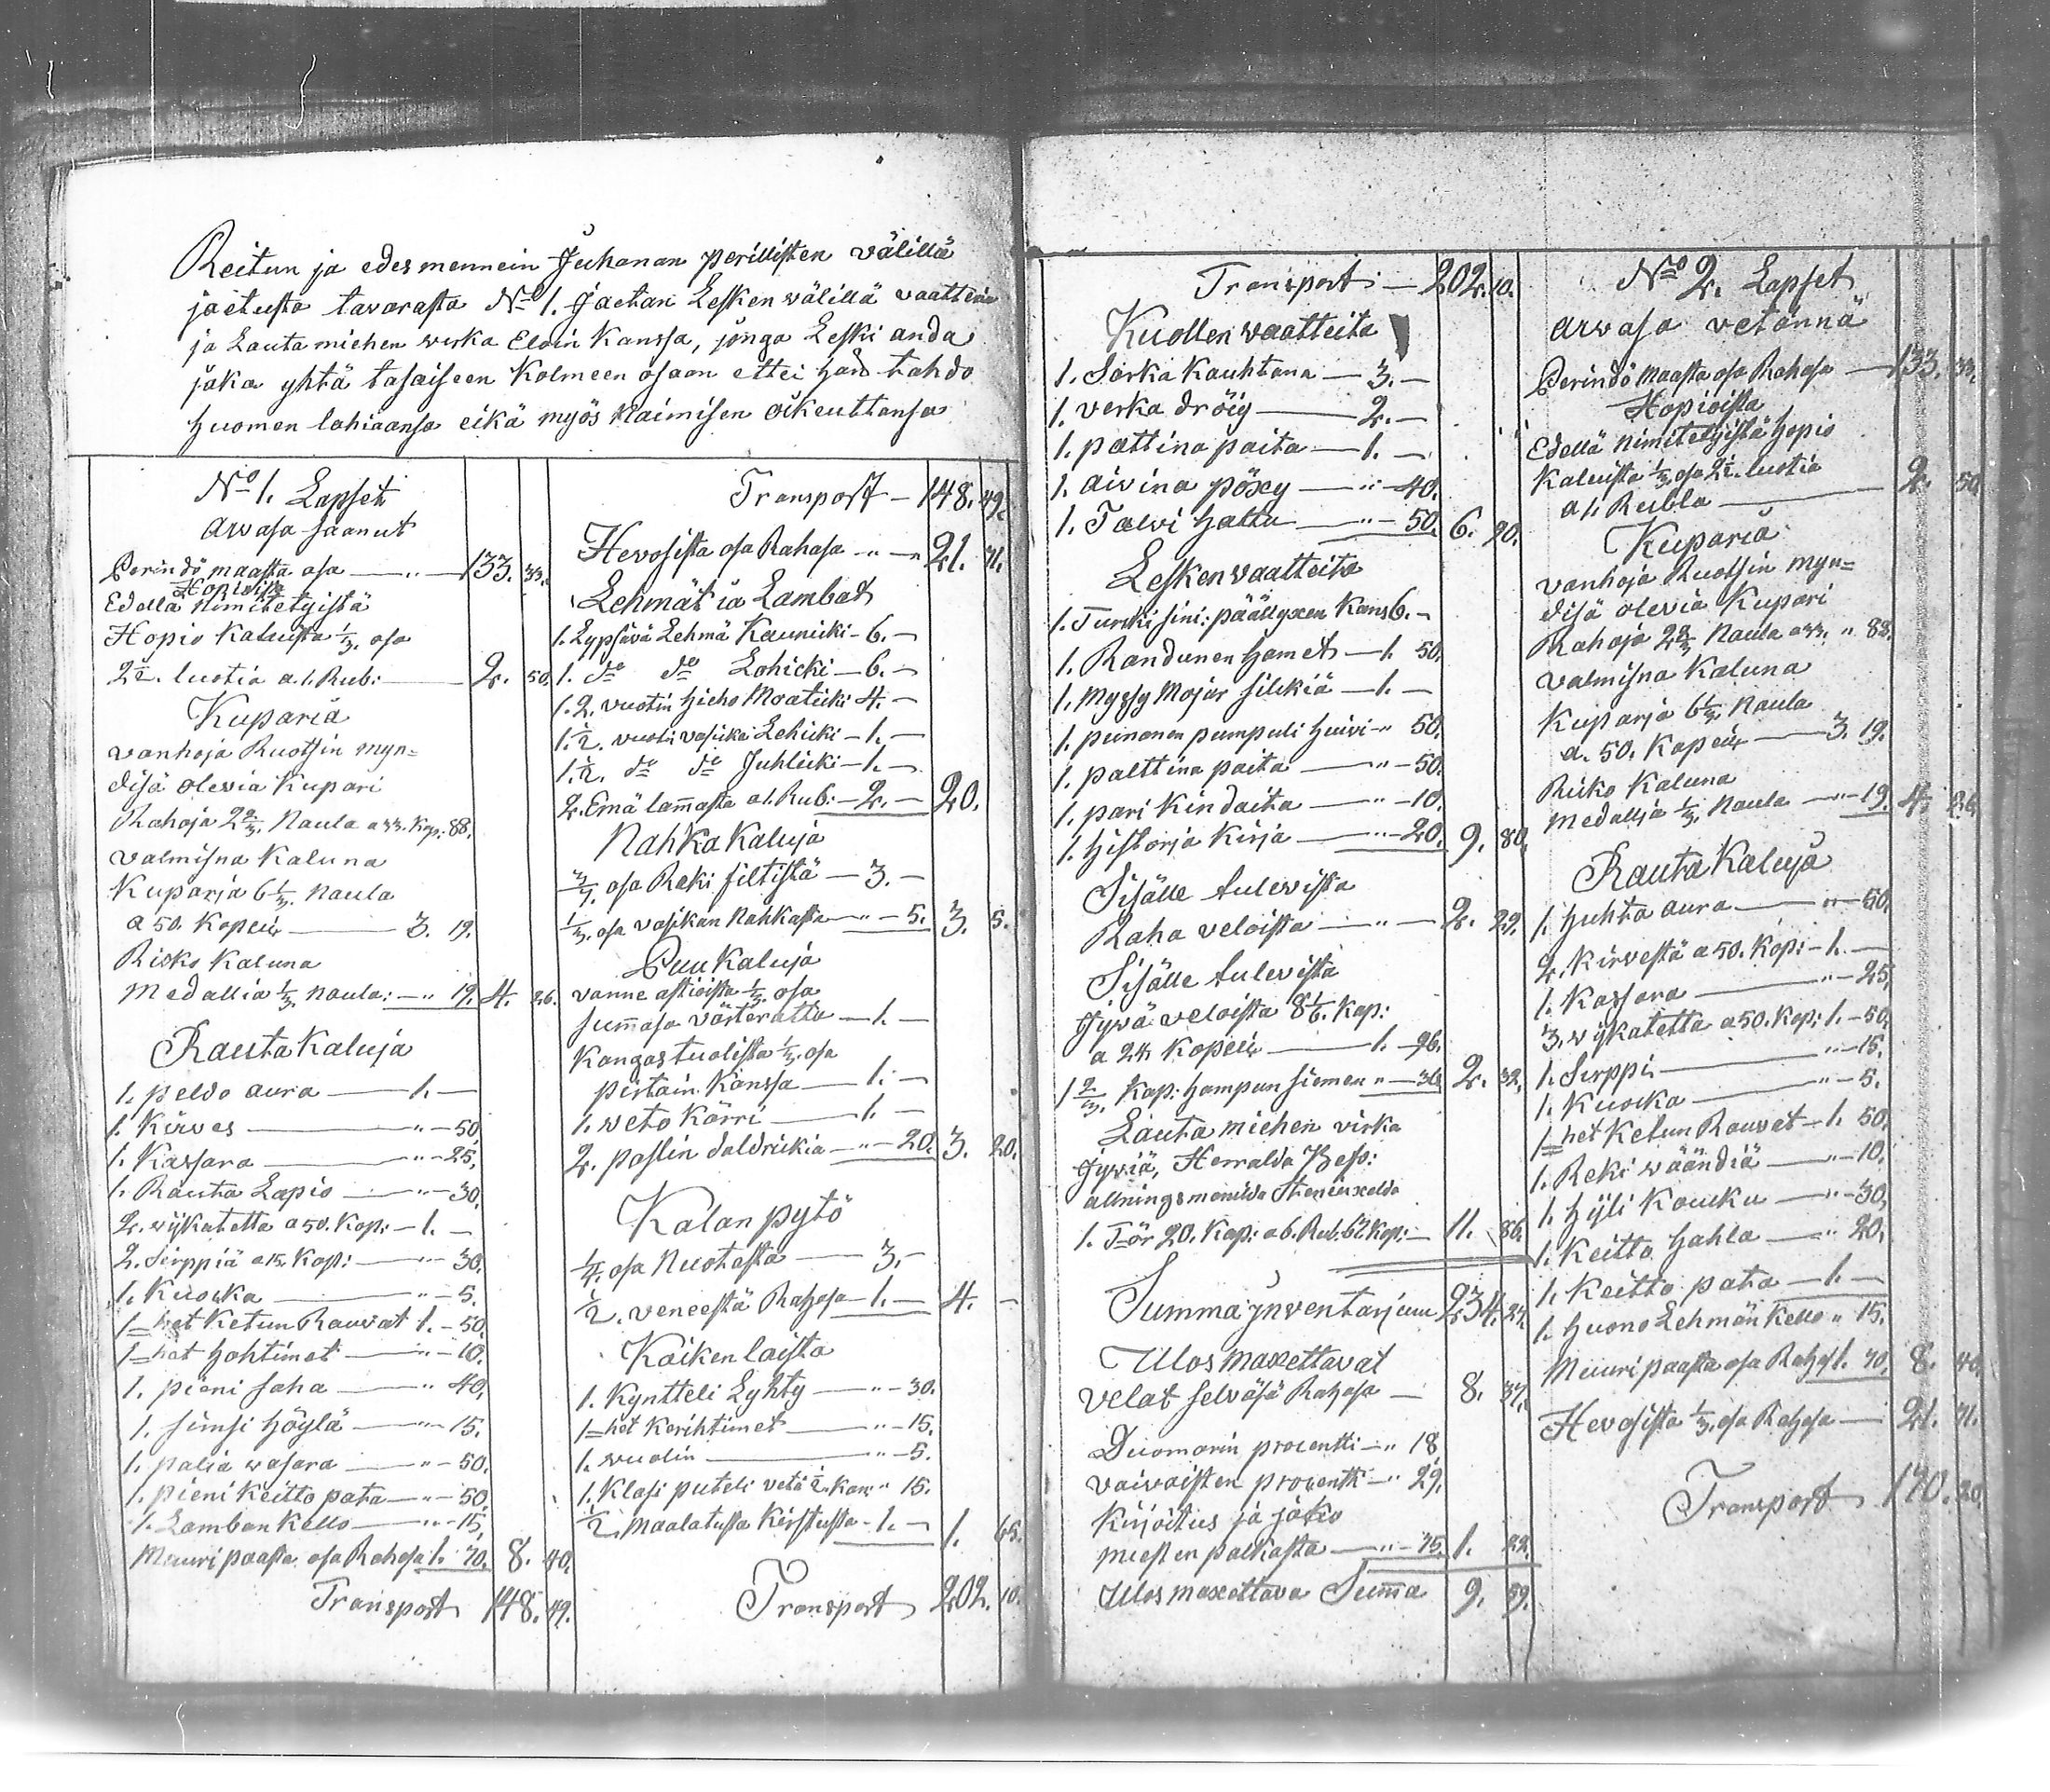 Reitun ja edesmennein Juhanan perillisten välillä
jaetusta tavarasta No 1. Jaetan Lesken wälillä vaattein
ja Lautamiehen wirka Eloin Kanssa, jonga Leski anda
jaka yhtä tasaiseen Kolmeen osaan ettei hän tahdo
huomen lahiaansa eikä myös naimisen oikeuttansa
No 1. Lapset
arwasa saanut
Perindö maasta osa — " — 133. 33.
Hopioista
Edellä nimitetyistä
Hopio Kaluista 1/3. osa
2½. luotia a 1. Rub: — 2. 50.
Kuparia
vanhoja Ruotsin myn=
disä olevia Kupari
Rahoja 2 2/3. Naula a 33. Kop: 88.
valmisna Kaluna
Kuparja 6 1/3. Naula
a 50. Kopeix — 3. 19.
Risko Kaluna
Medallia 1/3. naula: — " 19. 4. 26.
Rauta Kaluja
1. peldo aura — 1. —
1. Kirves — " — 50.
1. Kassara — " — 25.
1. Rauta Lapio — " — 30.
2. wijkatetta a 50. Kop: — 1. —
2. Sirppiä a 15. Kop: — " — 30.
1. Kuocka — " — 5.
1=het Ketun Rauvat 1. — 50.
1=het hohtimet — " — 10.
1. pieni saha — " 40.
1. simsi höylä — " 15.
1. palia wasara — " — 50.
1. pieni Keitto pata — " — 50.
1. Lamban Kello — " — 15.
Muuri paasta osa Rahasa 1. 70. 8. 40.
Transport 148. 49.
Transport — 148. 49.
Hevosista osa Rahasa " — " 21. 71.
Lehmät ja Lambat
1. Lypsävä Lehmä Kaunicki — 6. —
1. do do Lohicki — 6. —
1. 2. vuotin hieho Maaticki 4. —
1. ½. vuoti vasika Lehicki — 1. —
1. ½. do do Juhlicki — 1. —
2. Emä lammasta a 1. Rub: — 2. — 20.
Nahka Kaluja
3/7. osa Reki filtistä — 3. —
1/3. osa vasikan Nahkasta — " — 5. 3. 5.
Puu Kaluja
vanne astioista 1/3. osa
summasa värterattu — 1. —
Kangas tuolista 1/3. osa
pirtain Kanssa — 1. —
1. weto Kärri — 1. —
2. poslin daldrickia — " — 20. 3. 20.
Kalan pytö
1/4. osa Nuotasta — 3. —
½. veneestä Rahasa — 1. — 4. —
Kaikenlaista
1. Kyntteli Lyhty — " — 30.
1=het Kerihtimet — " — 15.
1. wuolin — " — 5.
1. Klasi puteli vetä ½. kan: " 15.
½. Maalatusta Kirstusta — 1. — 1. 65.
Transport 202. 10.
Transport: — 202. 10.
Kuollen vaatteita
1. Sarka Kauhtana — 3. —
1. verka dröig — 2. —
1. pattina paita — 1. —
1. aivina pöxy — " — 40.
1. Talvi hattu — " — 50. 6. 90.
Lesken vaatteita
1. Turcki sini: päällyxen Kans 6. —
1. Randunen hamet — 1. 50.
1. Myssy Mojar silckiä — 1. —
1. punanen pumpuli huivi — " 50.
1. palttina paita — " — 50.
1. pari Kindaita — " — 10.
1. historja Kirja — " — 20. 9. 80.
Sisälle tulewista
Raha veloista — " — 2. 29.
Sisälle tulewista
Jywä veloista 8 1/6. Kap:
a 24 Kopeix — 1. 96.
1 2/3. Kap: hampun siemen " — 36. 2. 32.
Lautamiehen virka
Jyviä, Herralda
1. Tör 20. Kap: a 6. Rub: 62 Kop: — 11. 86.
Summa Jnventarjum 234. 27.
Ulos maxettavat
velat selväsä Rahasa — 8. 37.
Duomarin procentti — " 18
vaivaisten procentti — " 29.
Kirjoitus ja jako
miesten palkasta — " — 75. 1. 22.
Ulos maxettava Summa 9. 59.
No 2. Lapset
arwasa vetännä
Perindö Maasta osa Rahasa — 133. 33.
Hopioista
Edellä nimitetyistä hopio
Kaluista 1/3. osa 2½. luotia
a 1. Rubla — 2. 50.
Kuparia
vanhoja Ruotsin myn=
disä olevia Kupari
Rahoja 2 2/3. Naula a 33. " 88.
valmisna Kaluna
Kuparja 6 1/3. Naula
a. 50. Kopeix — 3. 19.
Risko Kaluna
Medallja 1/3. Naula — " — 19. 4. 26.
Rauta Kaluja
1. huhta aura — " — 50.
2. Kirvestä a 50. Kop: — 1. —
1. Kassara — " — 25.
3. wijkatetta a 50. Kop: 1. — 50.
1. Sirppi — " — 15.
1. Kuocka — " — 5.
1=het Ketun Rauvat — 1. 50.
1. Reki wäändiä — " — 10.
1. hijli Koucku — " — 30.
1. Keitto hahla — " 20.
1. Keitto pata — 1. —
1. huono Lehmän Kello " 15.
Muuri paasta osa Rahas 1. 70. 8. 40.
Hevosista 1/3. osa Rahasa — 21. 71.
Transport 170. 20.